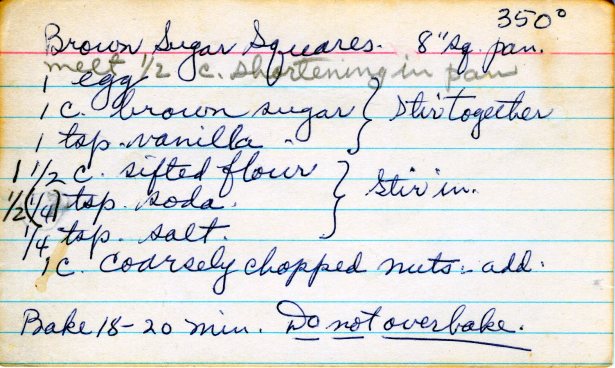 350°
Brown Sugar Squares. 8" sq. pan.
melt 1/2 c. shortening in pan
1 egg
1 c. brown sugar } Stir together
1 tsp. vanilla
1 1/2 c. sifted flour
1/2 (1/4) tsp. soda. } Stir in.
1/4 tsp. salt.
1 c. coarsely chopped nuts - add.
Bake 18-20 min. Do not overbake.